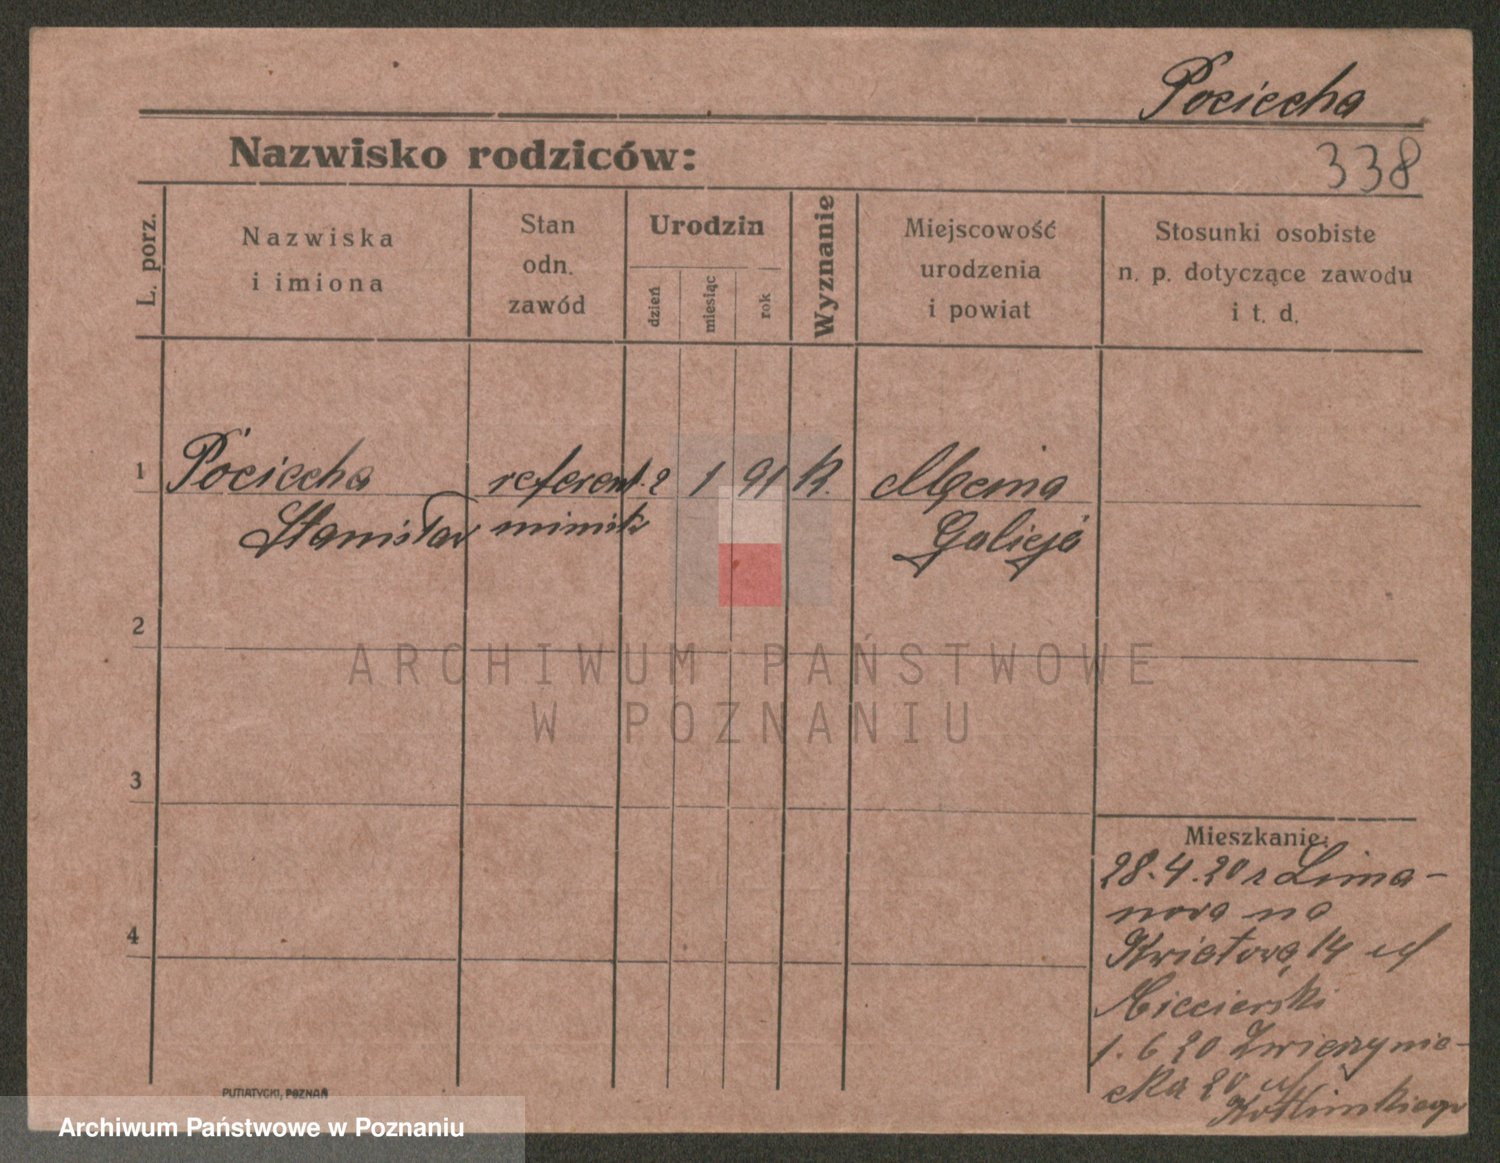 Pociecha
Nazwisko rodziców:
338
L. porz.
Nazwiska
i imiona
Stan
odn.
zawód
Urodzin
dzień
miesiąc
rok
Wyznanie
Miejscowość
urodzenia
i powiat
Stosunki osobiste
n. p. dotyczące zawodu
i t. d.
1 Pociecha referent 2 1 91 k. Męcina
Stanisław Galicja
2
3
4
Mieszkanie:
28.4.20 z Lima-
nova na
Kwiatową 14 u
1.6 20 Zwierzynie-
cka 20 u
PUTIATYCKI, POZNAŃ
ARCHIWUM PAŃSTWOWE
W POZNANIU
Archiwum Państwowe w Poznaniu